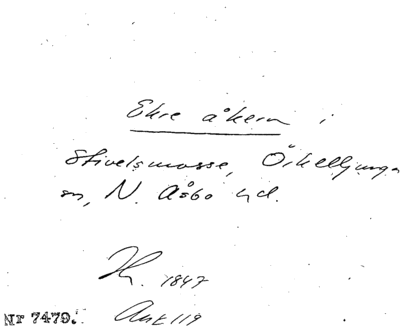 Ekre åkern i
Stivelsmosse, Örkelljunga
sn, N. Åsbo hd.
1847
Nr 7479. Akt 119